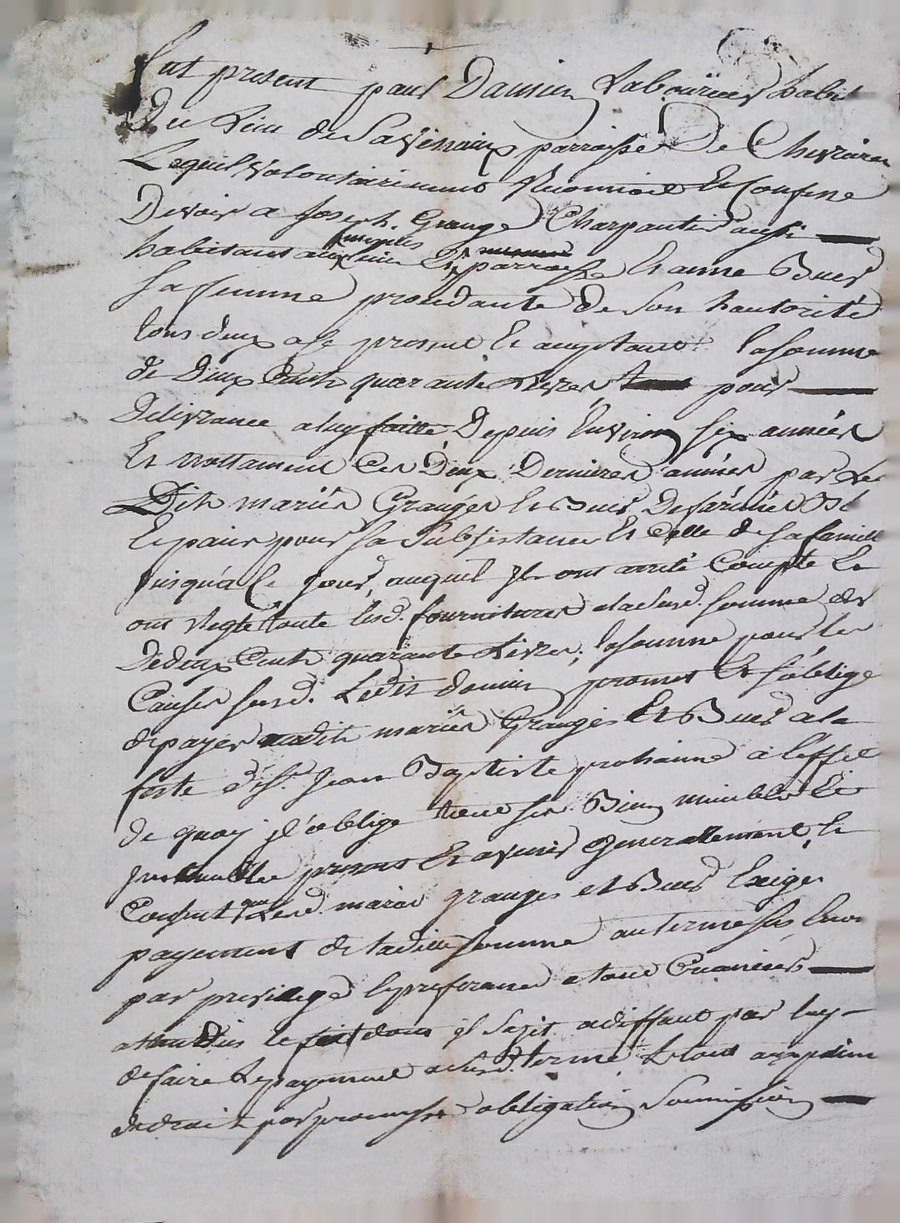 fut present paul Damien Laboureur habit
Du Lieu de Savenaux parroisse De Chevrieres
Lequel volontairement Reconnoit Et Confesse
Devoir a Joseph Grange Charpantier aussi
habitant aux susdits lieu Et parroisse Et anne Bues
Sa femme procedante de Son hautorité
tous deux a Ce present Et aceptant la Somme
de Deux Cents quarante Livres pour
Delivrance a luy faitte Depuis Environ six années
Et nottament Ces Deux Dernieres années par Les
Dits mariés Granges Et Bues De farines Bl
Et pain pour Sa Subsistance Et Celle de sa famille
jusqu'a Ce jour, auquel Ils ont arrêté Compte Et
ont reglé toute lesd. fournitures a lad. susd. somme de
De deux Cents quarante Livres, la somme pour les
Causes susd. Ledit damien promet Et s'oblige
de payer audits mariés Granges Et Bues a la
feste de St. Jean Baptiste prochaine a l'effet
de quoy il oblige tous ses Biens meubles Et
Immeubles presents Et avenir Generallement, Et
Consent que Lesd. mariés granges et Bues Exige
payement de laditte somme au terme sus
par privilege Et preferance a tous Creanciers
attendus le dont il s'agit a diffaut par luy
de faire Le payement audit terme Le tout a peine
de droit par promesse obligation Soumission